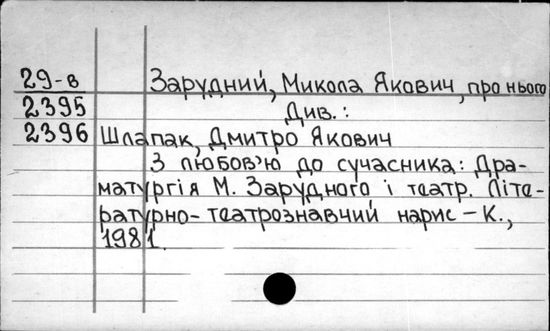 29-в Зарудний, Микола Якович, про нього
2395 Див.:
2396 Шлапак, Дмитро Якович
З любов'ю до сучасника: Дра-
матургія М. Зарудного і театр. Літе-
ратурно-театрознавчий нарис – К.,
1981.